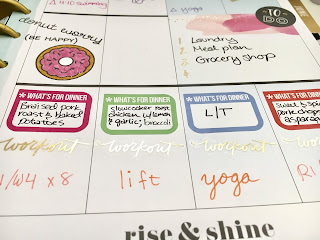 yoga
TO DO
donut worry
(BE HAPPY)
1 Laundry
2 Meal plan
3 Grocery shop
4
WHAT'S FOR DINNER
Braised pork
roast & baked
potatoes
WHAT'S FOR DINNER
slowcooker roast
chicken w/lemon
& garlic; broccoli
WHAT'S FOR DINNER
L/T
WHAT'S FOR DINNER
Sweet &
pork chops
asparagus
workout
workout
workout
workout
W4 x 8
lift
yoga
rise & shine